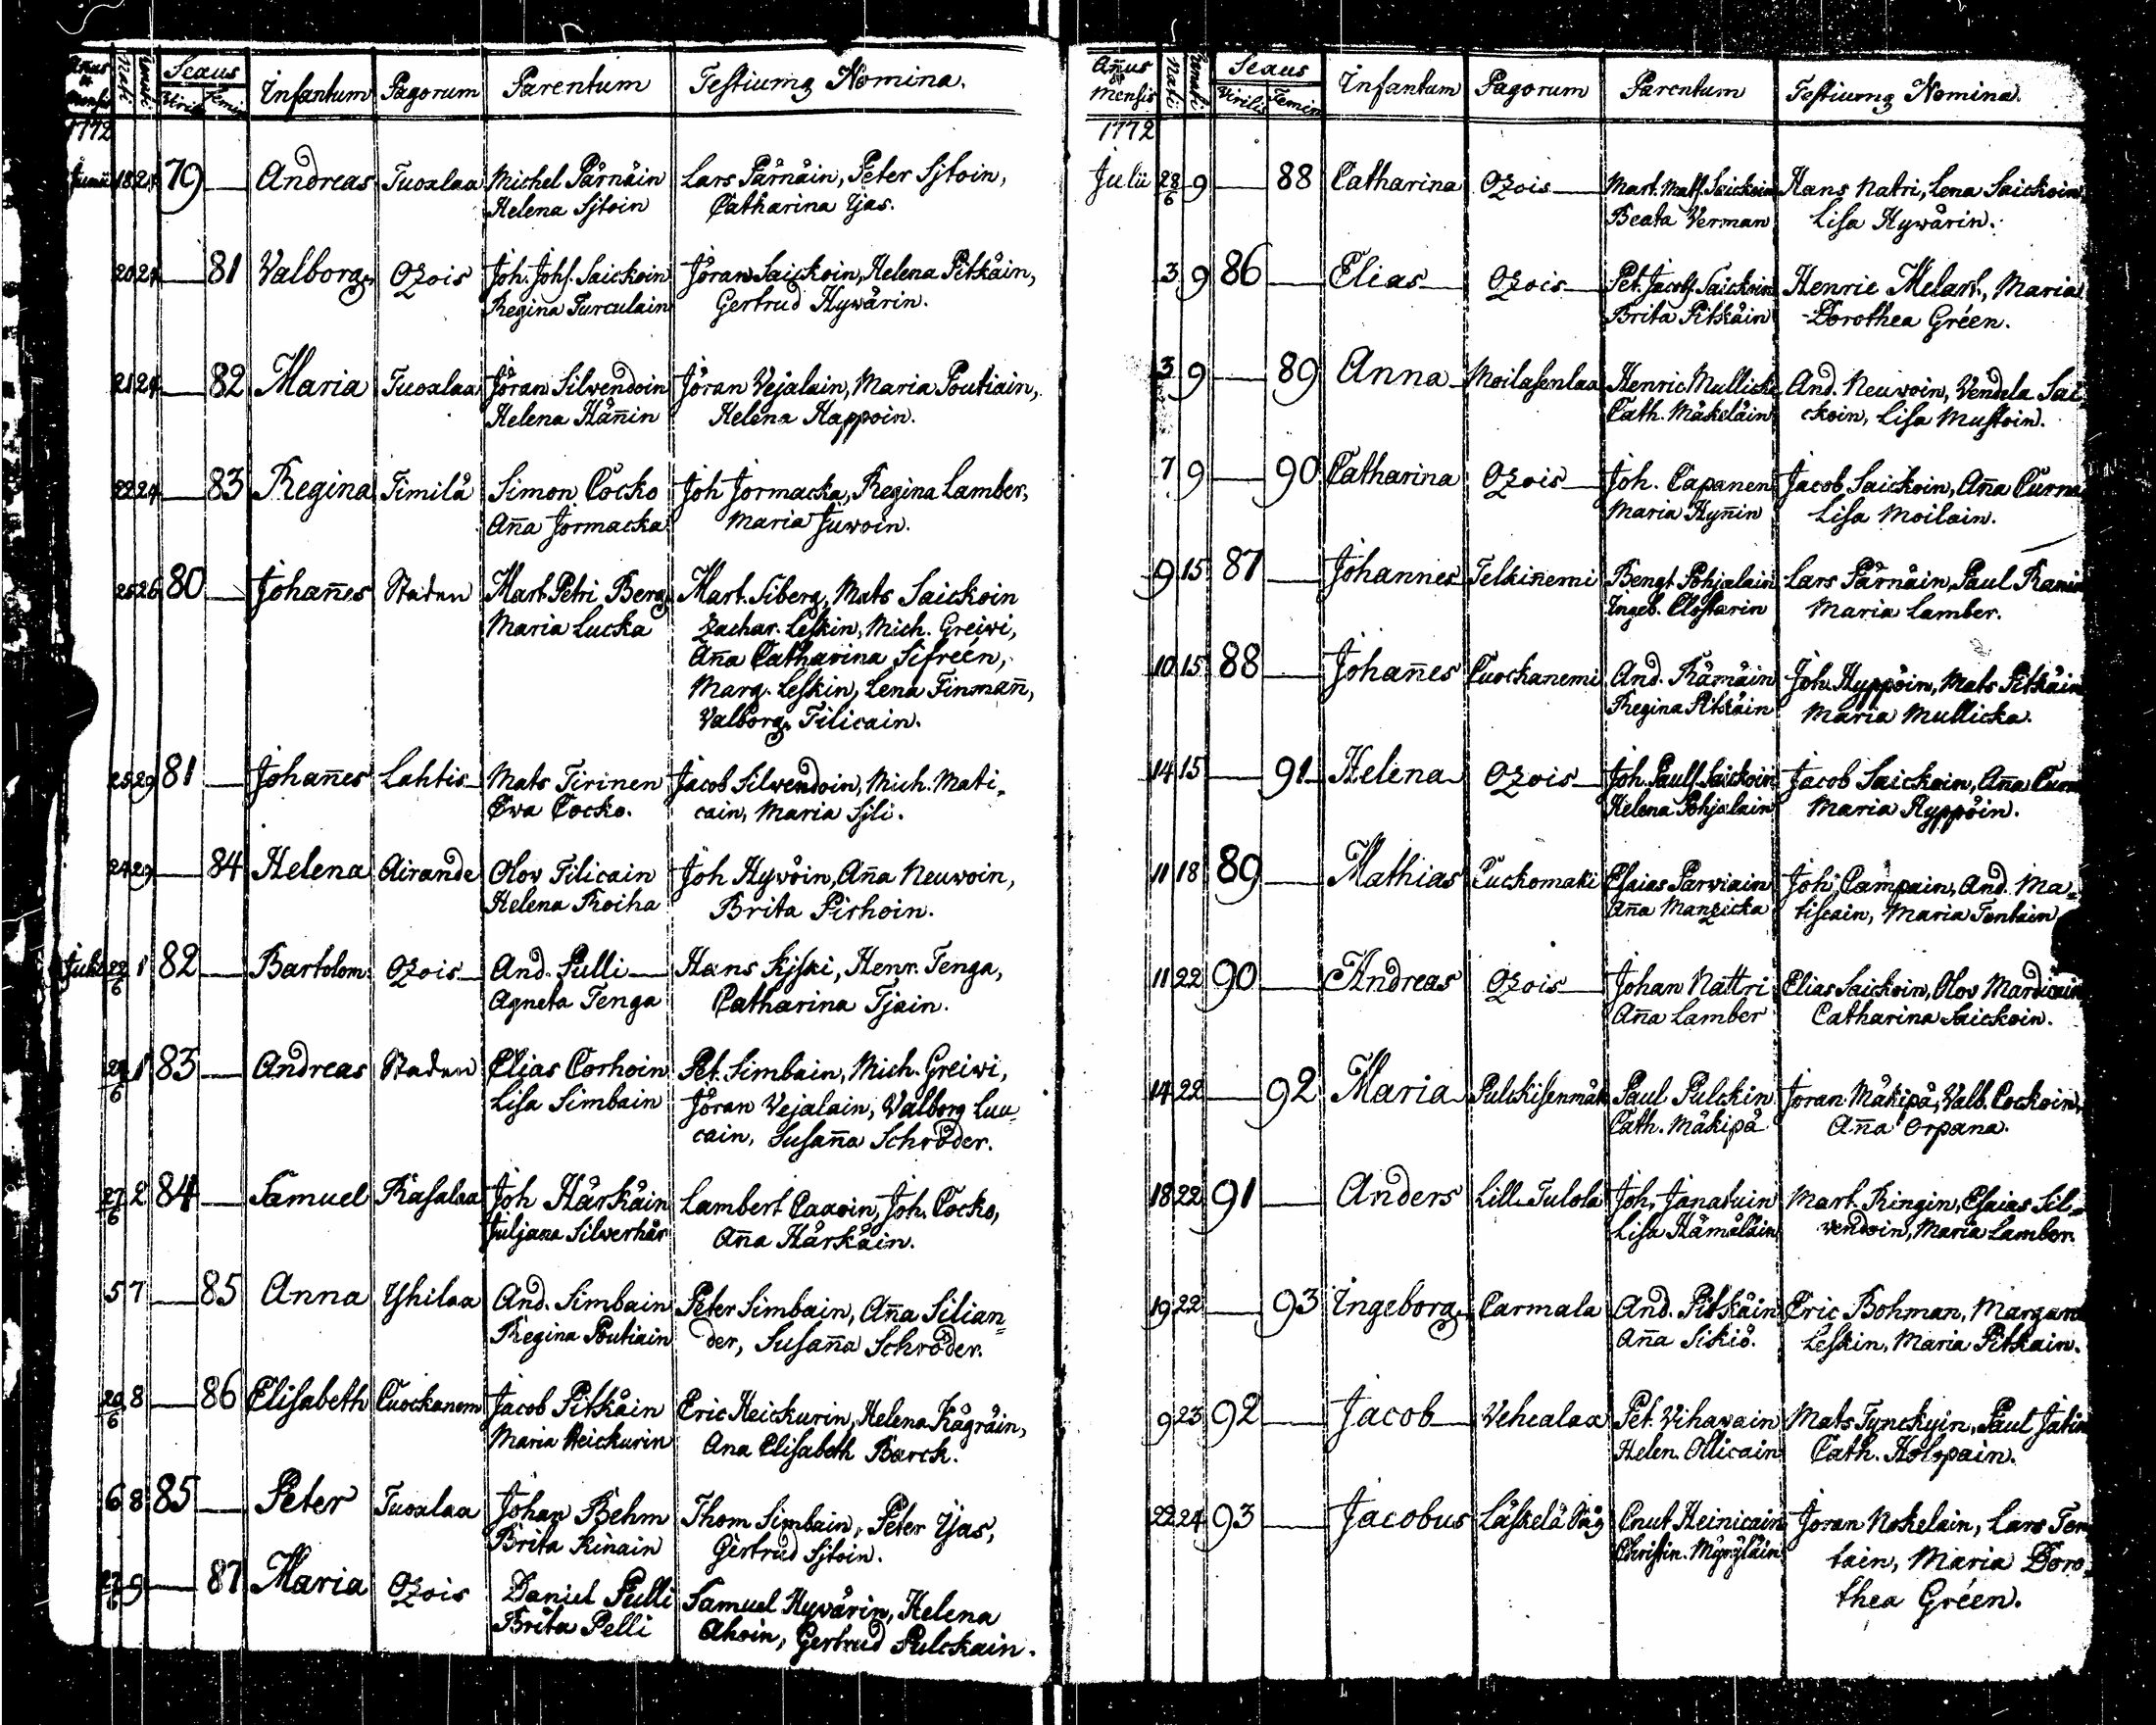 Añus & Mensis Nati Renati Sexus Infantum Pagorum Parentum Testiumq Nomina.
Virilis Femin
1772
Junii 18 24 79 Andreas Tuoxlaa Michel Pärnäin Lars Pärnäin, Peter Sjtoin,
Helena Sjtoin Catharina Yjas.
20 24 81 Valborg Ozois Joh. Johs. Saickoin Jöran Saickoin, Helena Pitkäin,
Regina Turculain Gertrud Hywärin.
21 24 82 Maria Tuoxlaa Jöran Silwendoin Jöran Vejalain, Maria Poutiain,
Helena Häñin Helena Happoin.
22 24 83 Regina Timilä Simon Cocko Joh Jormacka, Regina Lamber,
Aña Jormacka Maria Juwoin.
25 26 80 Johañes Staden Mart. Petri Berg Mart. Siberg, Mats Saickoin
Maria Lucka Zachar. Leskin, Mich. Greiwi,
Aña Catharina Sifreén,
Marg. Leskin, Lena Finmañ,
Valborg Tilicain.
25 29 81 Johañes Lahtis Mats Tirinen Jacob Silwendoin, Mich. Mati-
Ewa Cocko. cain, Maria Sjli.
24 29 84 Helena Airande Olov Tilicain Joh Hywöin, Aña Neuwoin,
Helena Roiha Brita Pirhoin.
Julii 22/6 1 82 Bartolom: Ozois And. Pulli Hans Kyski, Henr. Tenga,
Agneta Tenga Catharina Tjain.
24/6 1 83 Andreas Staden Elias Corhoin Pet. Simbain, Mich. Greiwi,
Lisa Simbain Jöran Vejalain, Valborg Luu-
cain, Susaña Schröder.
27/6 2 84 Samuel Rasalaa Joh Härkäin Lambert Caxoin, Joh. Cocko,
Juljana Silwerhår Aña Härkäin.
5 7 85 Anna Yhilaa And. Simbain Peter Simbain, Aña Silian=
Regina Poutiain der, Susaña Schröder.
20/6 8 86 Elisabeth Cuockanem Jacob Pitkäin Eric Heickurin, Helena Kägräin,
Maria Heickurin Ana Elisabeth Barck.
6 8 85 Peter Tuoxlaa Johan Behm Thom Simbain, Peter Yjas,
Brita Kinain Gertrud Sjtoin.
27/6 9 87 Maria Ozois Daniel Pulli Samuel Hywärin, Helena
Brita Pelli Ahoin, Gertrud Pulckain.
Añus & Mensis Nati Renati Sexus Infantum Pagorum Parentum Testiumq Nomina.
Virilis Femin
1772
Julii 28/6 9 88 Catharina Ozois Mart. Mats. Saickoin Hans Natri, Lena Saickoin
Beata Verman Lisa Hywärin.
3 9 86 Elias Ozois Pet. Jacobs. Saickoin Henric Melart, Maria
Brita Pitkäin Dorothea Gréen.
3 9 89 Anna Moilasenlaa Henric Mullicka And. Neuwoin, Vendela Sai-
Cath. Mäkeläin ckoin, Lisa Mustoin.
7 9 90 Catharina Ozois Joh. Capanen Jacob Saickoin, Aña
Maria Hyñin Lisa Moilain.
9 15 87 Johannes Telkiñemi Bengt Pohjalain Lars Pärnäin, Paul
Ingeb. Clostarin Maria Lamber.
10 15 88 Johañes Cuockanemi And. Rämäin Joh. Hyppöin, Mats Pitkäin
Regina Pitkäin Maria Mullicka.
14 15 91 Helena Ozois Joh. Pauls. Saickoin Jacob Saickoin, Aña
Helena Pohjalain Maria Hyppöin.
11 18 89 Mathias Cuckomäki Esaias Parwiain Joh. Campain, And. Ma-
Aña Manzicka tiscain, Maria Tentain
11 22 90 Andreas Ozois Johan Nattri Elias Saickoin, Olov Mardicain
Aña Lamber Catharina Saickoin.
14 22 92 Maria Pulckisenmäk Paul Pulckin Joran Mäkipä, Valb. Cockoin,
Cath. Mäkipä Aña Orpana.
18 22 91 Anders Lill Tulola Joh. Janatuin Mart. Ringin, Esaias Sil=
Lisa Hämäläin vendoin, Maria Lamber.
19 22 93 Ingeborg Carmala And. Pitkäin Eric Bohman, Margaret
Aña Sikiö. Leskin, Maria Pitkain.
9 23 92 Jacob Vehcalax Pet. Vihawain Mats Tynckyin, Paul
Helen. Ollicain Cath. Holopain.
22 24 93 Jacobus Läskelä Såg Cnut Heinicain Joran Nokelain, Lars Ten
Christin. Mÿrÿläin tain, Maria Doro-
thea Gréen.